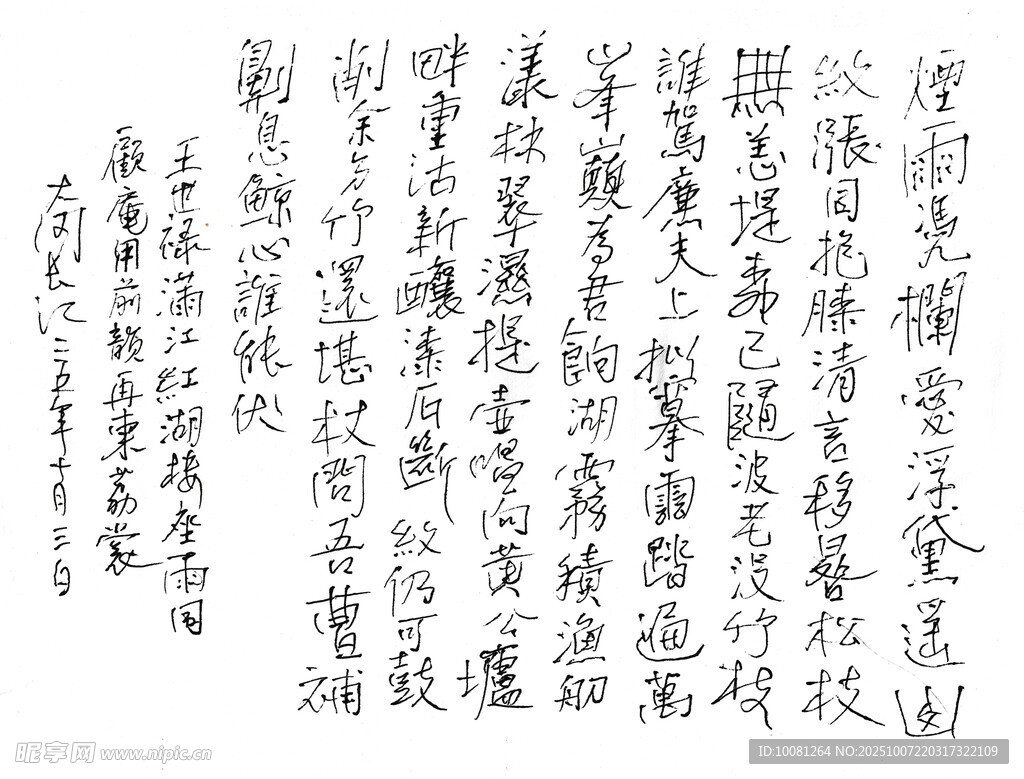 煙雨凴欄愛浮黛遥
紋漲同抱膝清言移晷松枝
無恙堤已隨波老没竹枝
誰駕廉夫上擬搴雲蹋遍萬
峯巔為君餉湖霧積漁舠
漾林翠濕提壺唱向黄公壚
畔重沽新釀漆石斷紋仍可鼓
淛余方竹還堪杖問吾曹補
劓息鯨心誰能伏
王世禄滿江紅湖樓座雨同
顧庵用前韻再柬荔裳
长江二五年十月三日
昵享网 www.nipic.cn
ID:10081264 NO:20251007220317322109